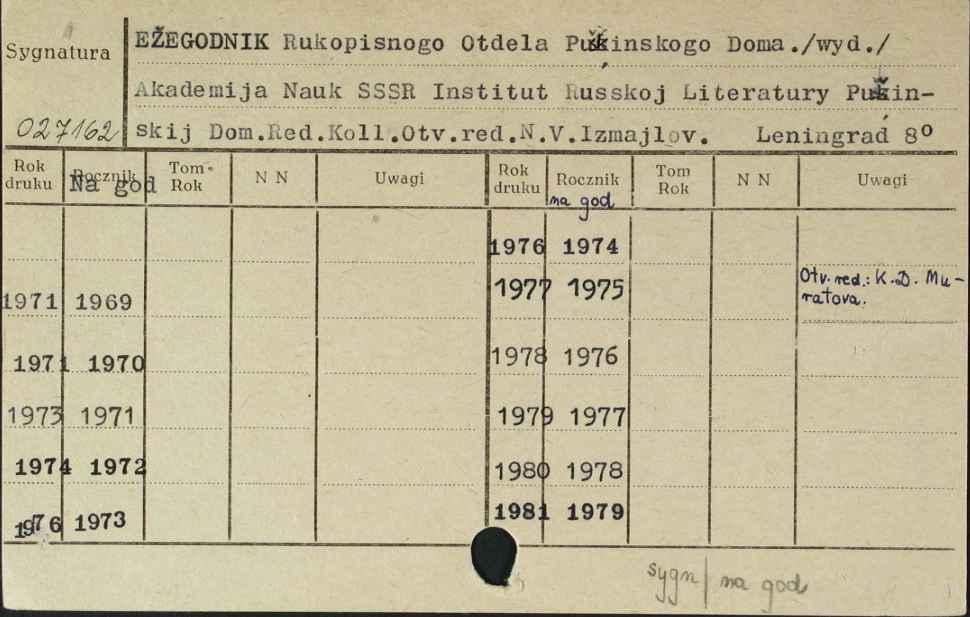 Sygnatura
EŽEGODNIK Rukopisnogo Otdela Puškinskogo Doma./wyd./
Akademija Nauk SSSR Institut Russkoj Literatury Puškin-
027162 skij Dom.Red.Koll.Otv.red.N.V.Izmajlov. Leningrad 8º
Rok druku Rocznik Tom-Rok N N Uwagi Rok druku Rocznik Tom Rok N N Uwagi
Na god na god
1976 1974
1971 1969 1977 1975 Otv. red.: K.D. Mu-
ratova.
1971 1970 1978 1976
1973 1971 1979 1977
1974 1972 1980 1978
1976 1973 1981 1979
sygn/na god